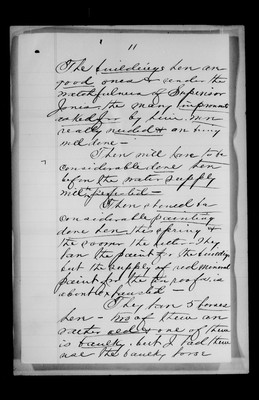 11
The buildings here are
good ones & under the
watchfulness of Supervisor
Jones the many improvements
asked for by him are
really needed & are being
well done —
There will have to be
considerable done here
before the water supply
will be perfected —
There should be
considerable painting
done here this spring &
the sooner the better. They
have the paint for the buildings
but the supply of red Mineral
paint for the tin roofs is
about exhausted —
They have 5 horses
here — two of them are
rather old & one of them
is baulky. but I had them
use the baulky horse